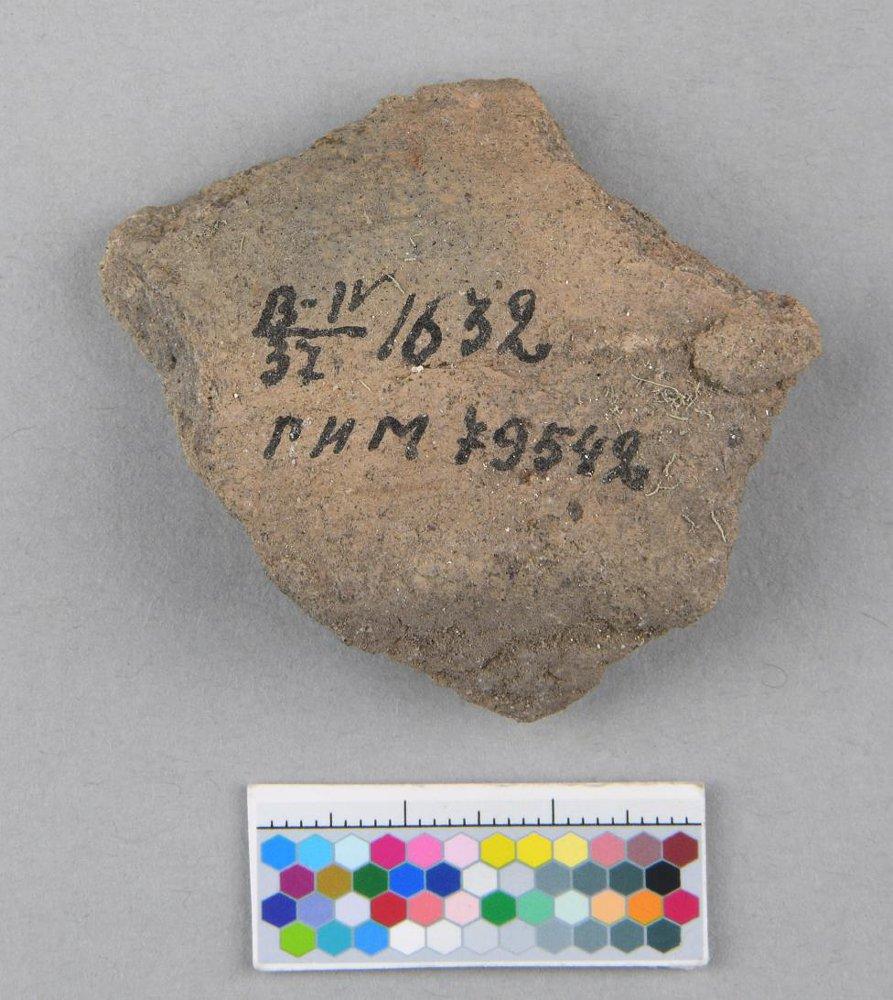 В-IV/32 1632
ПИМ 79542